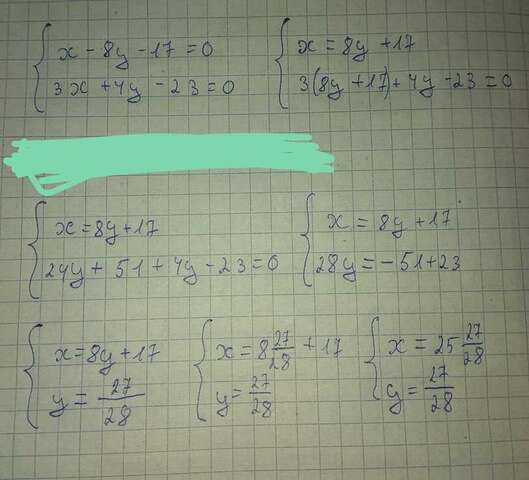 x - 8y - 17 = 0
3x + 4y - 23 = 0
x = 8y + 17
3(8y + 17) + 4y - 23 = 0
x = 8y + 17
24y + 51 + 4y - 23 = 0
x = 8y + 17
28y = - 51 + 23
x = 8y + 17
y = 27/28
x = 8 27/28 + 17
y = 27/28
x = 25 27/28
y = 27/28